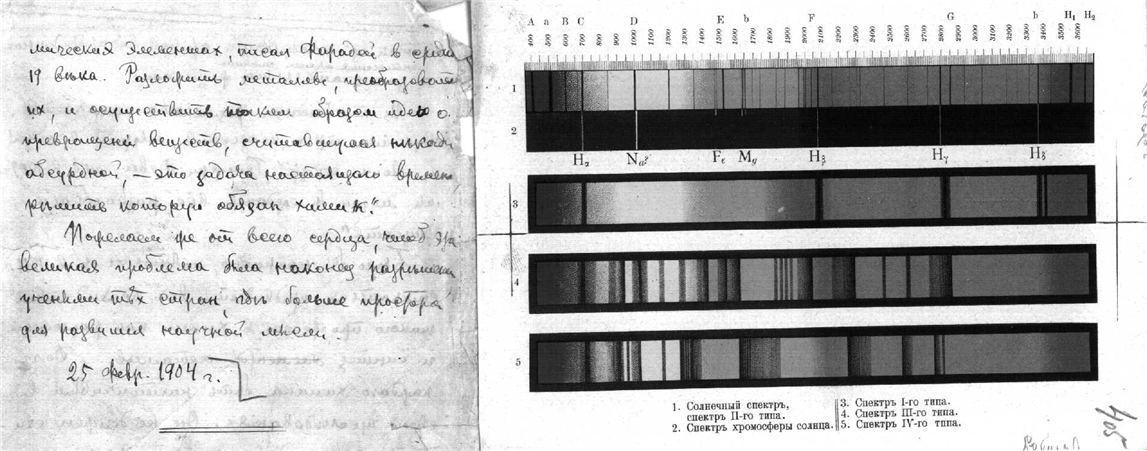 мическая элементах, писал Фарадей в средѣ
19 вѣка. Разложить металлы, преобразовать
их, и осуществить таким образом идею о
превращении веществ, считавшуюся
абсурдной, — это задача настоящаго времени,
рѣшить которую обязан химик."
Пожелаем же от всего сердца, чтоб эта
великая проблема была наконец разрѣшена
учеными тѣх стран, гдѣ больше простора
для развития научной мысли.
25 февр. 1904 г.
A a B C D E b F G h H₁ H₂
400 500 600 700 800 900 1000 1100 1200 1300 1400 1500 1600 1700 1800 1900 2000 2100 2200 2300 2400 2500 2600 2700 2800 2900 3000 3100 3200 3300 3400 3500 3600
1
2
Hα Na Fe Mg Hβ Hγ Hδ
3
4
5
1. Солнечный спектръ,
спектръ II-го типа.
2. Спектръ хромосферы солнца.
3. Спектръ I-го типа.
4. Спектръ III-го типа.
5. Спектръ IV-го типа.
405